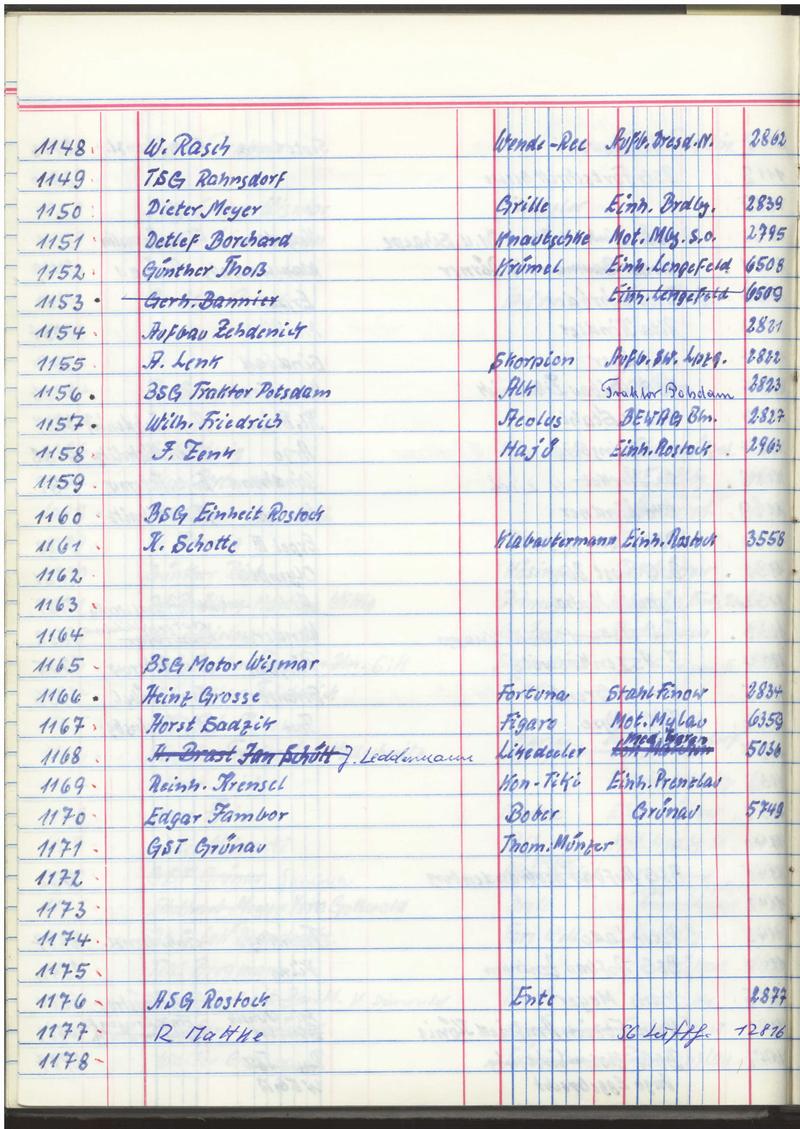 1148. W. Rasch Wende-Rec Aufb. Dresd. N. 2862
1149 TSG Rahnsdorf
1150 Dieter Meyer Grille Einh. Brdbg. 2839
1151 Detlef Borchard Knautschke Mot. Mbg. S.o. 2795
1152 Günther Thoß Krümel Einh. Lengefeld 6508
1153 Gerh. Bannier Einh. Lengefeld 6509
1154 Aufbau Zehdenick 2821
1155 A. Lenk Skorpion Aufb. SW. Lpzg. 2822
1156 BSG Traktor Potsdam Alk Traktor Potsdam 2823
1157 Wilh. Friedrich Aeolus BEWAG Bln. 2827
1158 F. Zenk Hajü Einh. Rostock 2963
1159
1160 BSG Einheit Rostock
1161 K. Schotte Klabautermann Einh. Rostock 3558
1162
1163
1164
1165 BSG Motor Wismar
1166 Heinz Grosse Fortuna Stahl Finow 2834
1167 Horst Sadzik Figaro Mot. Mylau 6359
1168 A. Brast Jan Schütt J. Leddermann Likedeeler Med. 5036
1169 Reinh. Krensel Kon-Tiki Einh. Prenzlau
1170 Edgar Jambor Bober Grünau 5749
1171 GST Grünau Thom. Münzer
1172
1173
1174
1175
1176 ASG Rostock Ente 2877
1177 R Matthe SG 12816
1178